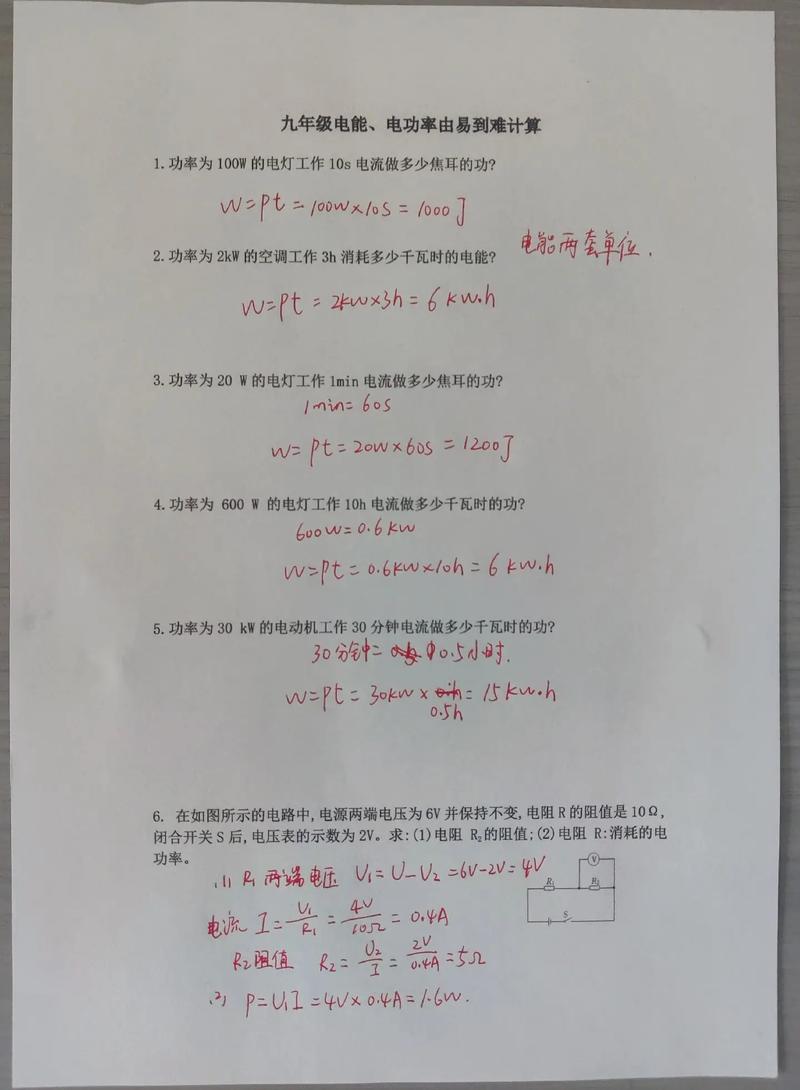 九年级电能、电功率由易到难计算
1.功率为100W的电灯工作10s电流做多少焦耳的功?
W=Pt=100W×10S=1000J
电能两套单位.
2.功率为2kW的空调工作3h消耗多少千瓦时的电能?
W=Pt=2kW×3h=6kW.h
3.功率为20 W的电灯工作1min电流做多少焦耳的功?
1min=60s
W=Pt=20W×60S=1200J
4.功率为 600 W 的电灯工作10h电流做多少千瓦时的功?
600W=0.6kW
W=Pt=0.6kW×10h=6kW.h
5.功率为30 kW的电动机工作30分钟电流做多少千瓦时的功?
30分钟=0.5小时.
W=Pt=30kW×=15kW.h
0.5h
6. 在如图所示的电路中,电源两端电压为6V并保持不变,电阻R的阻值是10Ω,
闭合开关S后,电压表的示数为2V。求:(1)电阻 R₂的阻值;(2)电阻 R:消耗的电
功率。
(1) R₁两端电压 U₁=U-U₂=6V-2V=4V
电流 I=U₁/R₁=4V/10Ω=0.4A
R₂阻值 R₂=U₂/I=2V/0.4A=5Ω
(2) P=U₁I=4V×0.4A=1.6W.
V
R₁
R₂
S